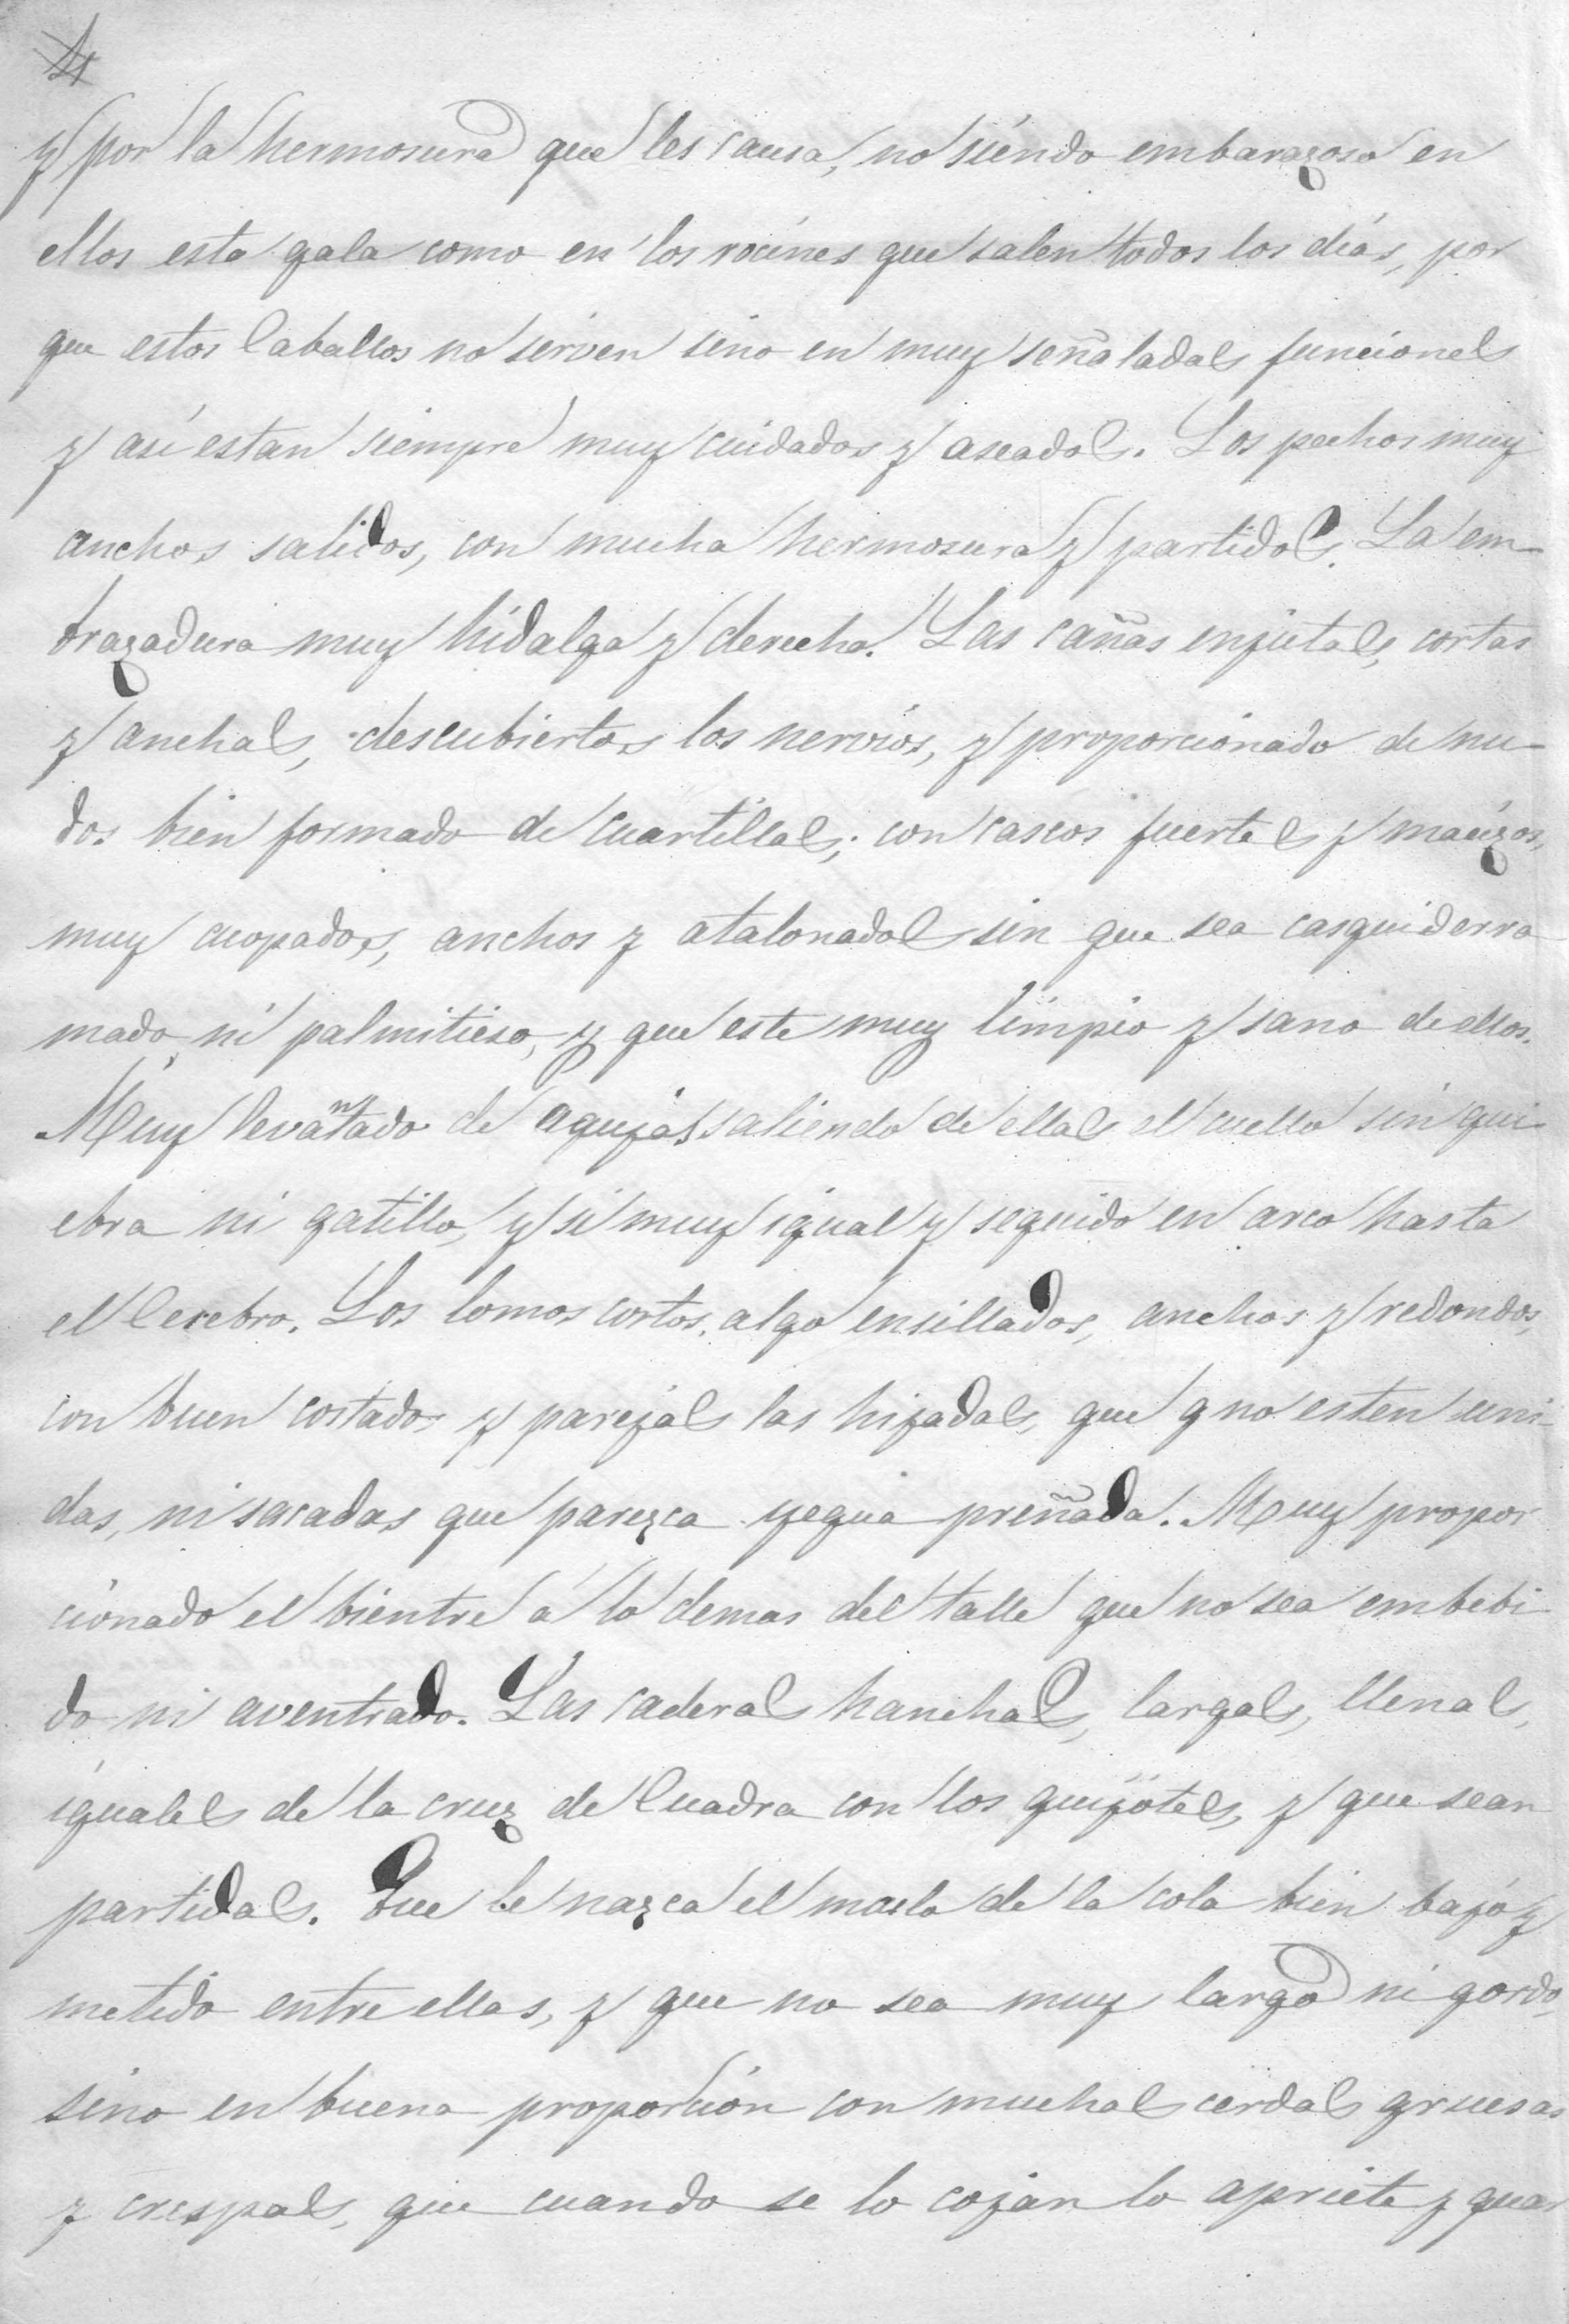 4
y por la hermosura que les causa, no siendo embarazoso en
ellos esta gala como en los rocines que salen todos los dias, por
que estos Caballos no sirven sino en muy señaladas funciones
y asi estan siempre muy cuidados y aseados. Los pechos muy
anchos salidos, con mucha hermosura y partidos. La em-
brazadura muy hidalga y derecha. Las cañas enjutas, cortas
y anchas, descubiertos los nervios, y proporcionado de nu-
dos bien formado de cuartillas; con cascos fuertes y macizos,
muy acopados, anchos y atalonados sin que sea casquiderra
mado ni palmitieso, y que este muy limpio y sano de ellos.
Muy levantado de agujas saliendo de ellas el cuello sin qui-
ebra ni gatillo, y si muy igual y seguido en arco hasta
el Cerebro. Los lomos cortos, algo ensillados, anchos y redondos,
con buen costados y parejas las hijadas, que q no esten sumi-
das, ni sacadas que parezca yegua preñada. Muy propor
cionado el bientre á lo demas del talle que no sea embebi-
do ni aventrado. Las caderas hanchas, largas, llenas,
iguales de la cruz de Cuadra con los quijotes, y que sean
partidas. Que le nazca el maslo de la cola bien bajo y
metido entre ellas, y que no sea muy largo ni gordo,
sino en buena proporcion con muchas cerdas gruesas
y crespas, que cuando se lo cojan lo apriete y guar